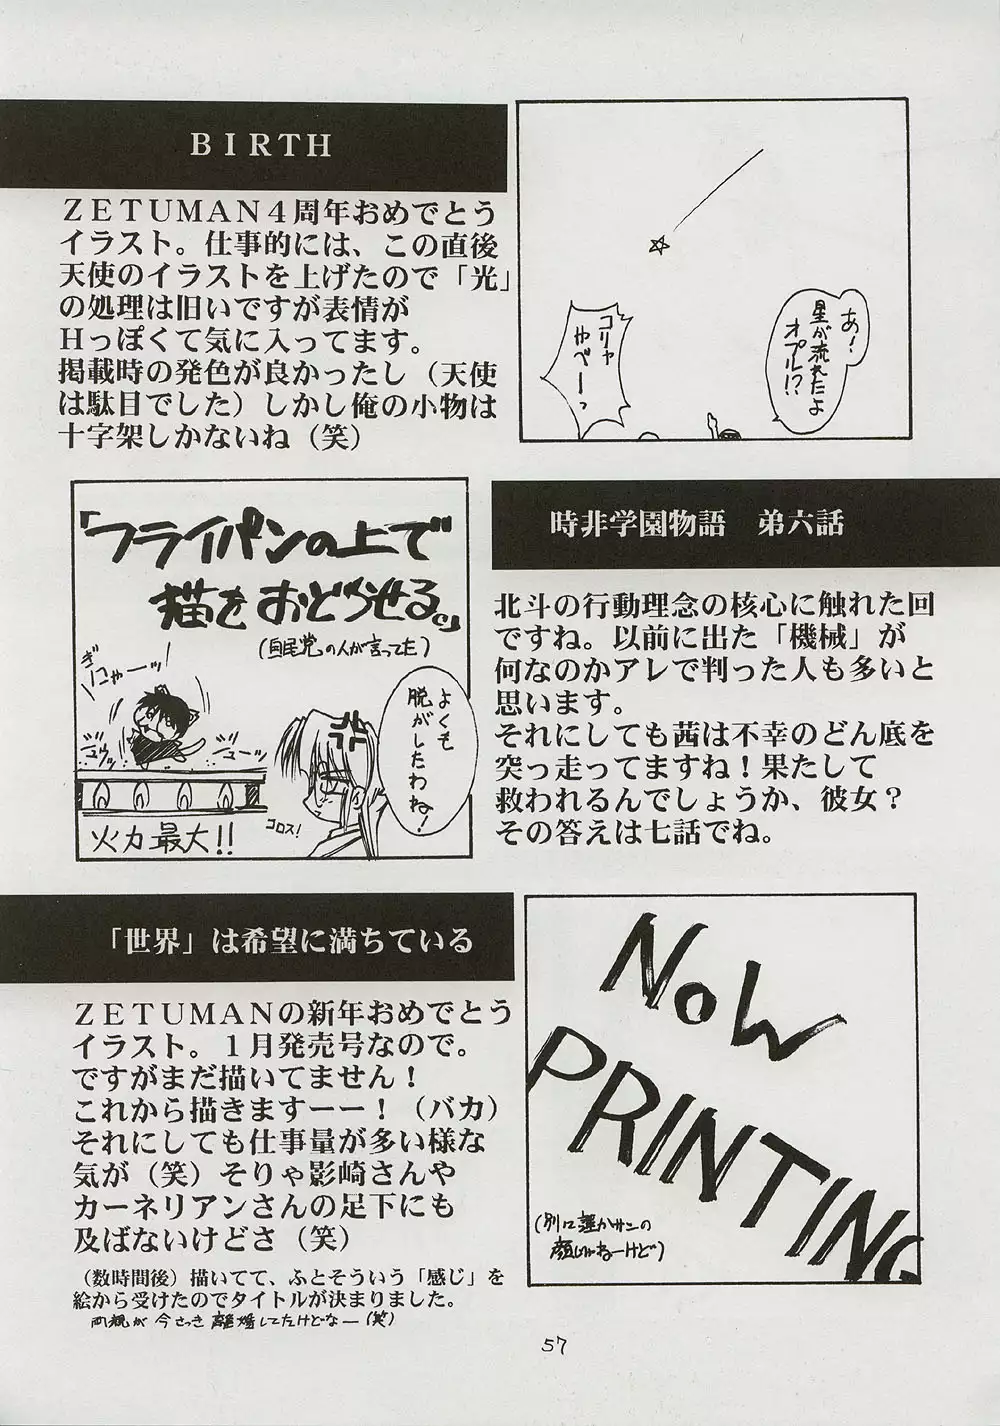 BIRTH
ZETUMAN4周年おめでとう
イラスト。仕事的には、この直後
天使のイラストを上げたので「光」
の処理は旧いですが表情が
Hっぽくて気に入ってます。
掲載時の発色が良かったし（天使
は駄目でした）しかし俺の小物は
十字架しかないね（笑）
あ！
星が流れたよ
オプル!?
コリャ
やべーっ
「フライパンの上で
猫をおどらせる。」
（自民党の人が言ってた）
ギニャーッ！
ジュウッ
ジューッ
よくも
脱がしたわね！
コロス！
火力最大!!
時非学園物語　弟六話
北斗の行動理念の核心に触れた回
ですね。以前に出た「機械」が
何なのかアレで判った人も多いと
思います。
それにしても茜は不幸のどん底を
突っ走ってますね！果たして
救われるんでしょうか、彼女？
その答えは七話でね。
「世界」は希望に満ちている
ZETUMANの新年おめでとう
イラスト。１月発売号なので。
ですがまだ描いてません！
これから描きますーー！（バカ）
それにしても仕事量が多い様な
気が（笑）そりゃ影崎さんや
カーネリアンさんの足下にも
及ばないけどさ（笑）
（数時間後）描いてて、ふとそういう「感じ」を
絵から受けたのでタイトルが決まりました。
両親が今さっき離婚してたけどなー（笑）
NOW
PRINTING
（別に誰かサンの
顔じゃねーけど）
57